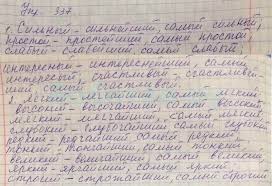 Упр. 337
1. Сильный – сильнейший, самый сильный,
простой – простейший, самый простой,
слабый – слабейший, самый слабый,
интересный – интереснейший, самый
интересный, счастливый – счастливей-
ший, самый счастливый.
2. Легкий – легчайший, самый легкий
высокий – высочайший, самый высокий
мягкий – мягчайший, самый мягкий
глубокий – глубочайший, самый глубокий
редкий – редчайший, самый редкий
тонкий – тончайший, самый тонкий
великий – величайший, самый великий
яркий – ярчайший, самый яркий
строгий – строжайший, самый строгий